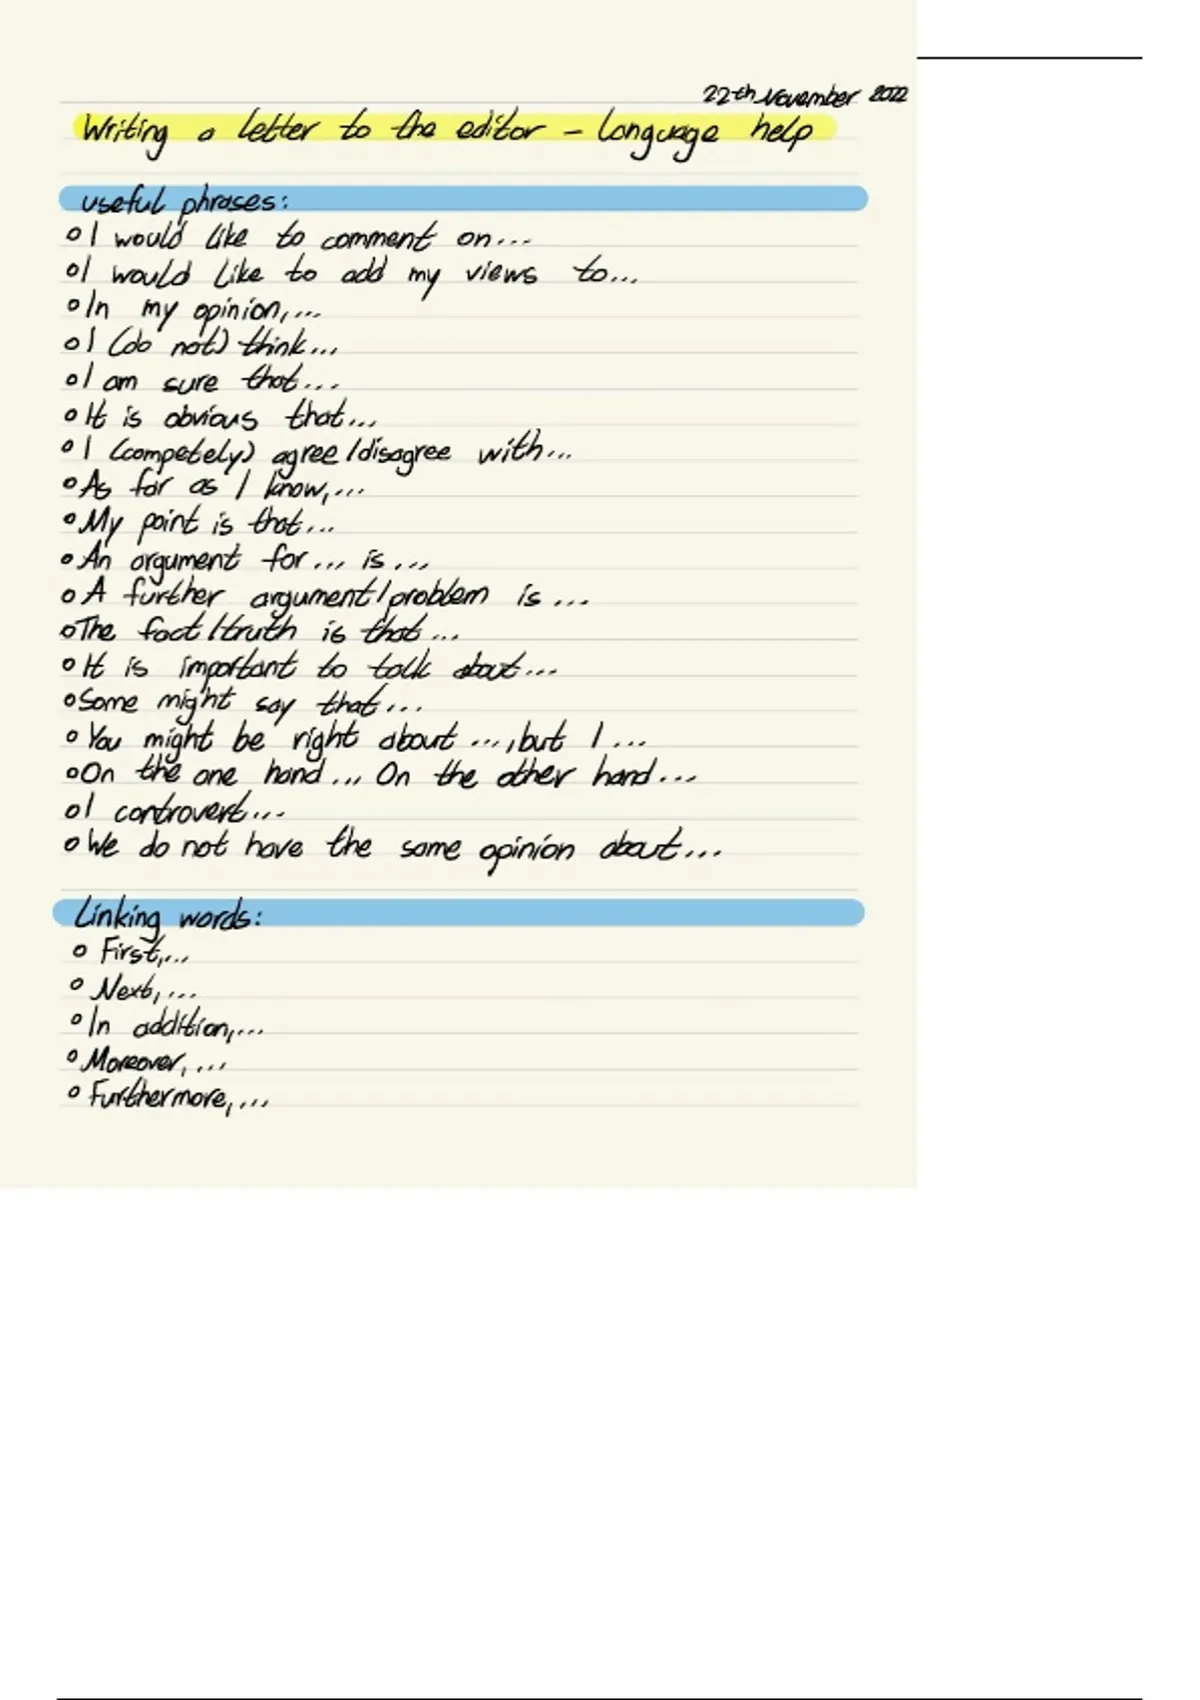 22th November 2022
Writing a letter to the editor - language help
useful phrases:
o I would like to comment on...
o I would like to add my views to...
o In my opinion,...
o I (do not) think...
o I am sure that...
o It is obvious that...
o I (competely) agree/disagree with...
o As far as I know,...
o My point is that...
o An argument for... is...
o A further argument/problem is...
o The fact/truth is that...
o It is important to talk about...
o Some might say that...
o You might be right about ..., but I ...
o On the one hand... On the other hand...
o I controvert...
o We do not have the same opinion about...
Linking words:
o First,...
o Next,...
o In addition,...
o Moreover,...
o Furthermore,...